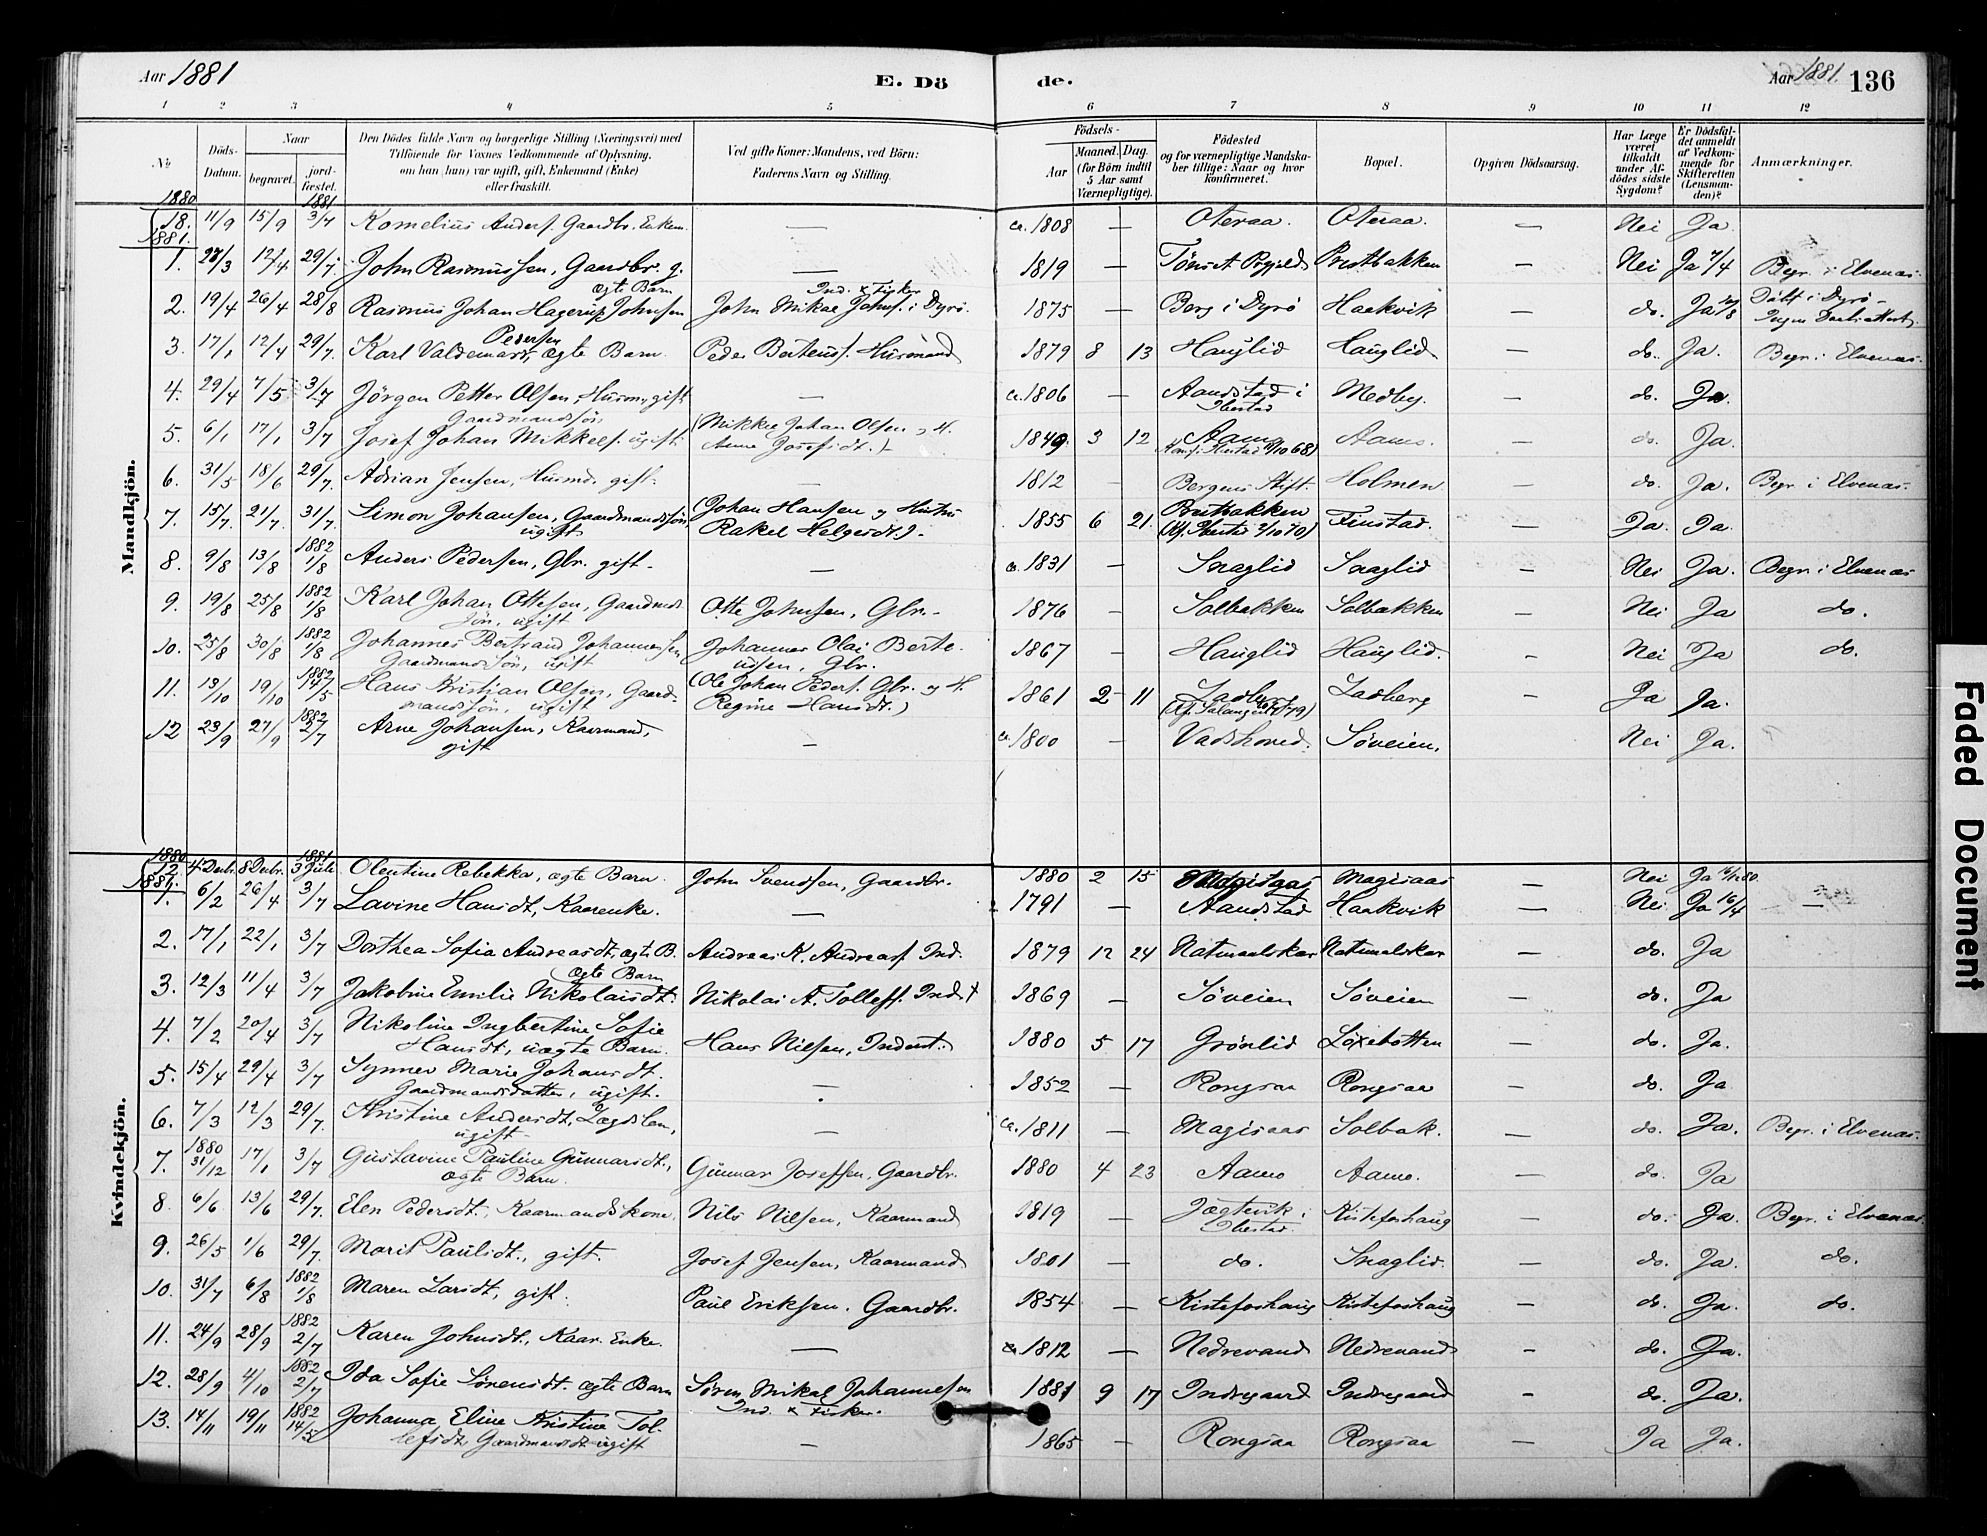 Aar 1881 E. Dö de. Aar 1881. 136
1 2 3 4 5 6 7 8 9 10 11 12
No Döds-Datum. Naar begravet. jord-fæstet. Den Dödes fulde Navn og borgerlige Stilling (Næringsvei) med Tilföiende for Voxnes Vedkommende af Oplysning, om han (hun) var ugift, gift, Enkemand (Enke) eller fraskilt. Ved gifte Koner: Mandens, ved Börn: Faderens Navn og Stilling. Födsels- Aar Maaned. Dag. (for Börn indtil 5 Aar samt Værnepligtige). Födested og for værnepligtige Mandskaber tillige: Naar og hvor konfirmeret. Bopæl. Opgiven Dödsaarsag. Har Læge været tilkaldt under Afdödes sidste Sygdom? Er Dödsfaldet anmeldt af Vedkommende for Skifteretten (Lensmanden)? Anmærkninger.
Mandkjön.
1880 1881
18. 11/9 15/9 3/7 Kornelius Anders. Gaardbr. Enkem. — ca. 1808 — Oteraa. Oteraa. — Nei Ja.
1881.
1. 28/3 12/4 29/7. John Rasmussen, Gaardbr. g. — 1819 — Prestbakken — Nei Ja 7/4 Begr. i Elvenæs.
2. 19/4 26/4 28/8 Rasmus Johan Hagerup Johnsen ægte Barn John Mikal Johns. i Dyrö. Ind. & Fisker 1875 — Berg i Dyrö Haakvik — do. Döbt i Dyrö
3. 17/1 12/4 29/7. Karl Valdemar Pedersen, ægte Barn. Peder Berteuss. Husmand 1879 8 13 Hauglid Hauglid — do. Ja. Begr. i Elvenæs.
4. 29/4 7/5 3/7 Jörgen Petter Olsen, Husm., gift — ca. 1806 — Aandstad i Ibestad Medby. — do. Ja.
5. 6/1 17/1 3/7 Josef Johan Mikkels. ugift. Gaardmandssön (Mikkel Johan Olsen og H. Anne Josefsdt.) 1849. 3 12 Aamo Aamo. — do. Ja.
6. 31/5 18/6 29/7. Adrian Jensen, Husmd. gift. — 1812 — Bergens Stift. Holmen — do. Ja. Begr. i Elvenæs.
7. 15/7. 21/7. 31/7. Simon Johansen, Gaardmandssön, ugift (Johan Hansen og Hustru Rakel Helgesdt.). 1855 6 21. Prestbakken Finstad. — Ja. Ja.
8. 9/8 13/8 1882 1/8 Anders Pedersen, Gbr. gift. — ca. 1831 — Snaglid Snaglid — Nei Ja. Begr. i Elvenæs
9. 19/8 25/8 1882 1/8 Karl Johan Ottesen, Gaardmds. sön, ugift Otte Johnsen, Gbr. 1876 — Solbakken Solbakken — Nei Ja do.
10. 25/8 30/8 1882 1/8 Johannes Bertrand Johannessen, Gaardmandssön, ugift Johannes Olai Berteussen, Gbr. 1867 — Hauglid Hauglid. — Nei Ja do.
11. 13/10 19/10 1882 14/5 Hans Kristian Olsen, Gaardmandssön, ugift (Ole Johan Peders. Gbr. og H. Regine Hansdt.) 1861 2 11 Ladberg — Ja Ja.
12 23/9 27/9 1882 2/7 Arne Johansen, Kaarmand, gift — ca. 1800 — Vadshoved. Söveien. Nei Ja.
Kvindekjön.
1880 1881
12 4 Decbr. 8 Decbr. 3 Juli Olentine Rebekka, ægte Barn. John Svendsen, Gaardbr. 1880 2 15 Magisaas Magisaas — Nei Ja
1881.
1. 6/2 26/4 3/7 Lavine Hansdt, Kaarenke. — 1791 — Aandstad Haakvik — Nei Ja 16/4 —
2. 17/1 22/1 3/7 Dorthea Sofia Andreasdt, ægte B. Andreas K. Andreass. Ind. 1879 12 24 — do. Ja
3. 12/3 11/4 3/7 Jakobine Emilie Nikolaisdt. ægte Barn Nikolai A. Tollefs. Ind. + 1869 — Söveien Söveien — do. Ja
4. 7/2 20/4 3/7 Nikoline Ingbertine Sofie Hansdt, uægte Barn. Hans Nilsen, Inderst. 1880 5 17 Grönlid Löxebotten — do. Ja.
5. 15/4 29/4 3/7 Synnev Marie Johansdt. Gaardmandsdatter, ugift. — 1852 — Rongsaa Rongsaa — do. Ja
6. 7/3 12/3 29/7. Kristine Andersdt, Lægdslem, ugift — ca. 1811 — Magisaas Solbak. — do. Ja. Begr. i Elvenæs.
7. 1880 31/12 17/1 3/7 Gustavine Pauline Gunnarsdt., ægte Barn. Gunnar Joseffsen, Gaardbr. 1880 4 23 Aamo Aamo. — do. Ja
8. 6/6 13/6 29/7. Elen Pedersdt., Kaarmandskone. Nils Nilsen, Kaarmand 1819 Jægtevik i Ibestad Kisteforshaug — do. Ja. Begr. i Elvenæs.
9. 26/5 1/6 29/7. Marit Paulsdt., gift. Josef Jensen, Kaarmand 1801 — do. Snaglid. — do. Ja. do.
10. 31/7 6/8 1882 1/8 Maren Larsdt, gift. Paul Eriksen. Gaardbr. 1854 — Kisteforshaug Kisteforshaug — do. Ja. do.
11. 24/9 28/9 1882 2/7 Karen Johnsdt., Kaar. Enke. — ca. 1812 — Nedrevand Nedrevand — do. Ja.
12. 28/9 4/10 1882 2/7 Ida Sofie Sörensdt. ægte Barn Sören Mikal Johannesen Ind. & Fisker. 1881 9 17 Indregaard Indregaard — do. Ja.
13. 14/11 19/11 1882 14/5 Johanna Eline Kristine Tollefsdt, Gaardmandsdt. ugift — 1865 — Rongsaa Rongsaa — Ja Ja.
Faded Document